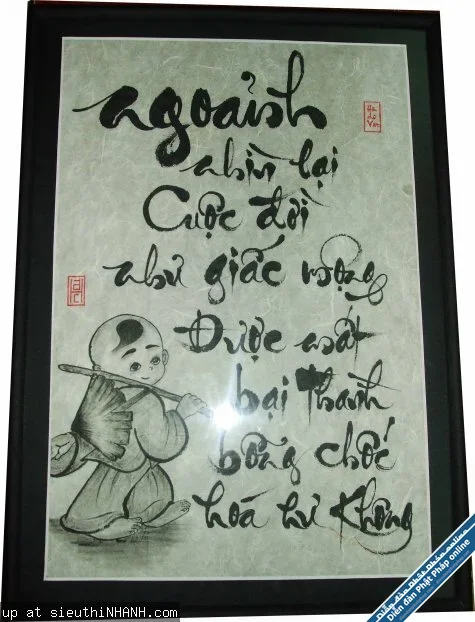 Ngoảnh
nhìn lại
Cuộc đời
như giấc mộng
Được mất
bại Thành
bỗng chốc
hoá hư Không
Diễn đàn Phật Pháp online
up at sieuthiNHANH.com